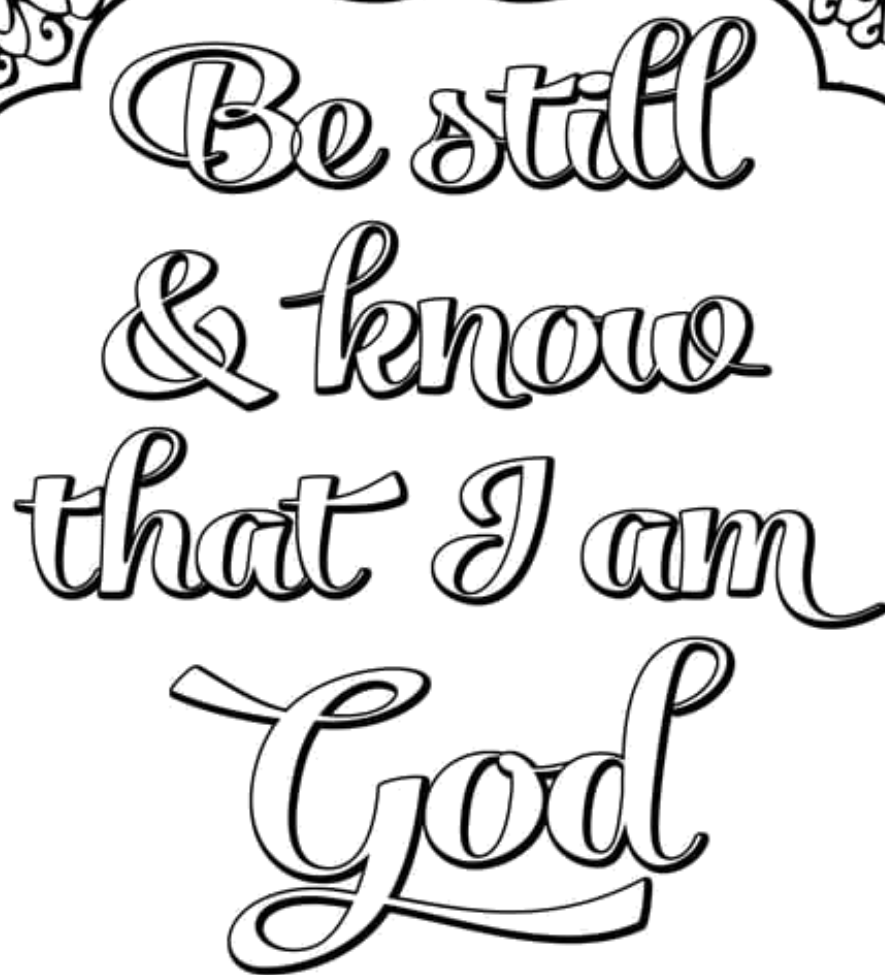 Be still
& know
that I am
God